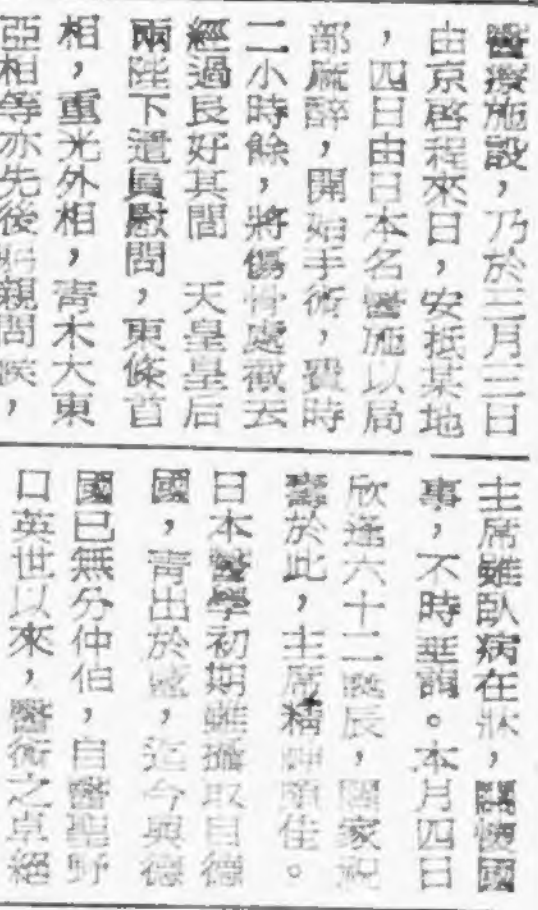 醫療施設，乃於三月三日
由京啓程來日，安抵某地
，四日由日本名醫施以局
部麻醉，開始手術，費時
二小時餘，將傷骨處撤去
經過良好其間　天皇皇后
兩陛下遣員慰問，東條首
相，重光外相，青木大東
亞相等亦先後親問候，
主席雖臥病在牀，關懷國
事，不時垂詢。本月四日
欣逢六十二誕辰，闔家祝
壽於此，主席精神頗佳。
日本醫學初期雖攝取自德
國，青出於藍，迄今與德
國已無分仲伯，自醫聖野
口英世以來，醫術之卓絕